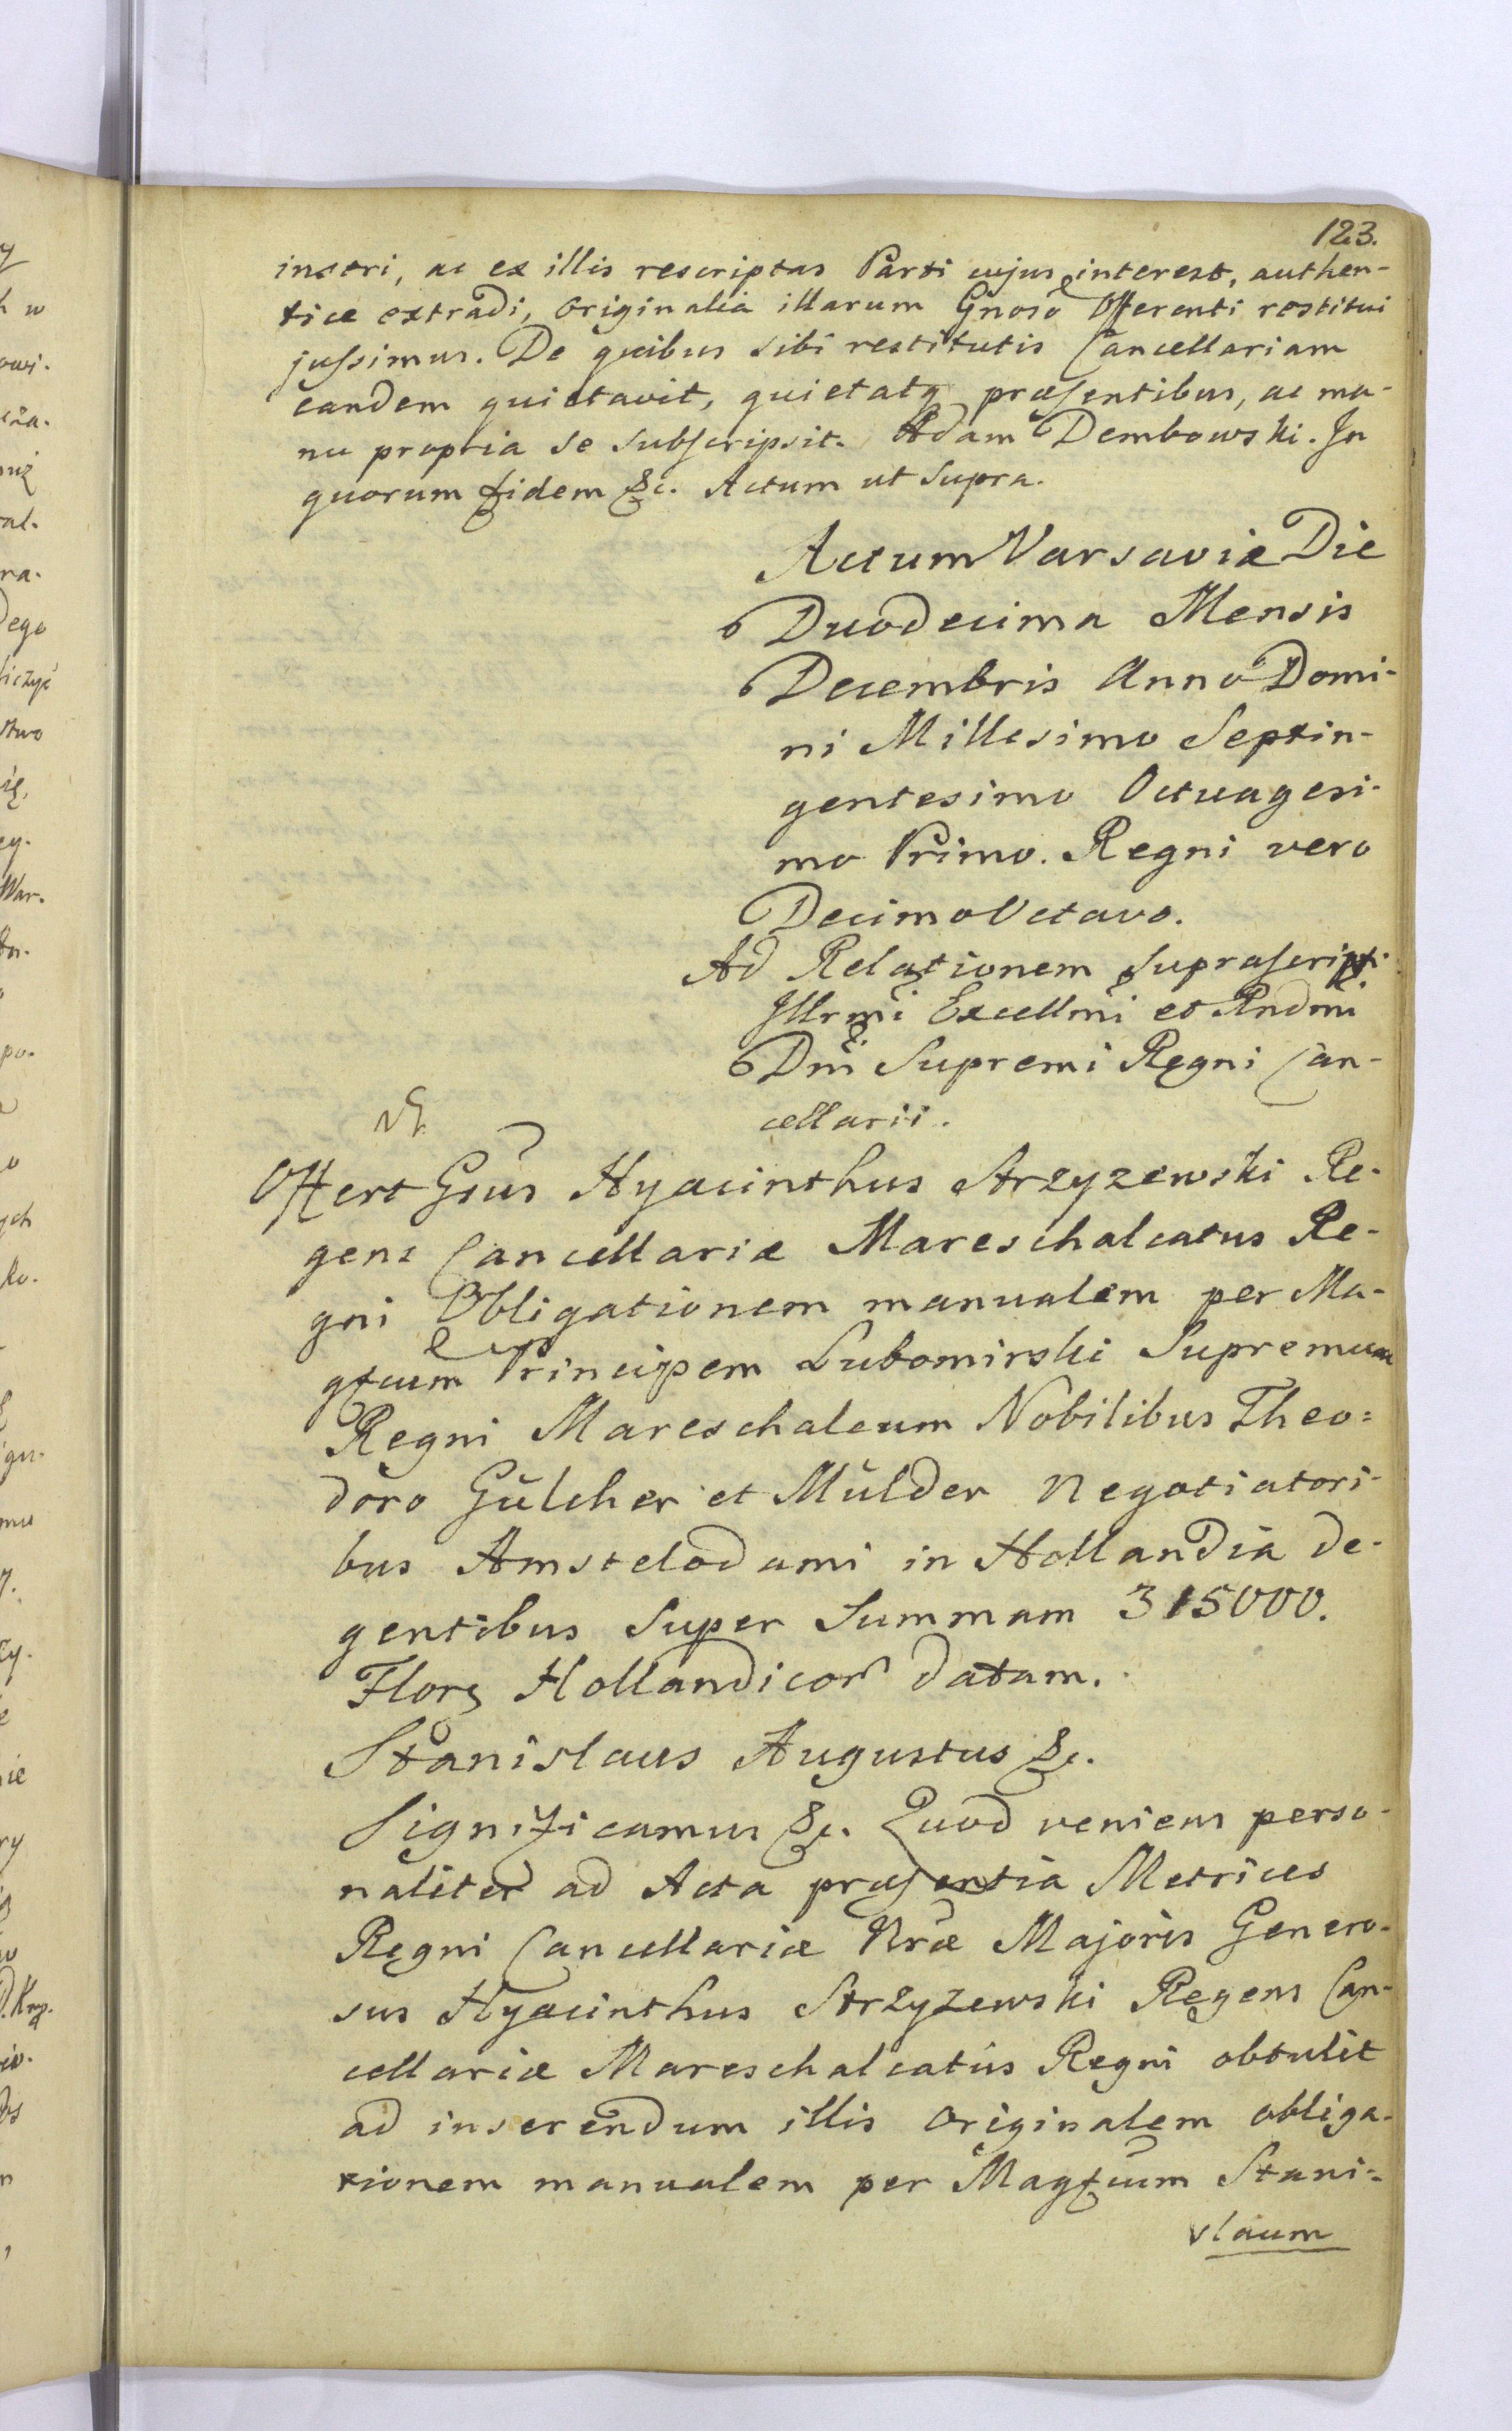 123.
inseri, ac ex illis rescriptas Parti cujus interest, authen-
tice extradi, originalia illarum Gnoso Offerenti restitui
jussimus. De quibus sibi restitutis Cancellariam
eandem quietavit, quietatq præsentibus, ac ma-
nu propria se subscripsit. Adam Dembowski. In
quorum fidem &c. Actum ut supra.
Actum Varsaviæ Die
Duodecima Mensis
Decembris Anno Domi-
ni Millesimo Septin-
gentesimo Octuagesi-
mo Primo. Regni vero
Decimo Octavo.
Ad Relationem suprascripti
Illrmi Excellmi et Rndmi
Dni Supremi Regni Can-
cellarii.
Offert Gsus Hyacinthus Strzyzewski Re-
gens Cancellariæ Mareschalcatus Re-
gni Obligationem manualem per Ma-
gfcum Principem Lubomirski Supremum
Regni Mareschalcum Nobilibus Theo=
doro Gülcher et Mülder Negotiatori-
bus Amstelodami in Hollandia de-
gentibus super Summam 315000.
Flor Hollandicor datam.
Stanislaus Augustus &c.
Significamus &c. Quod veniens perso-
naliter ad Acta præsentia Metrices
Regni Cancellariæ Nræ Majoris Genero-
sus Hyacinthus Strzyzewski Regens Can-
cellariæ Mareschalcatus Regni obtulit
ad inserendum illis originalem obliga-
tionem manualem per Magfcum Stani-
slaum